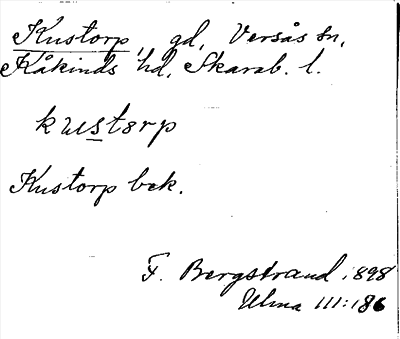 Kustorp, gd, Versås sn,
Kåkinds hd, Skarab. l.
kustorp
Kustorp bek.
F. Bergstrand 1898
Ulma III:186